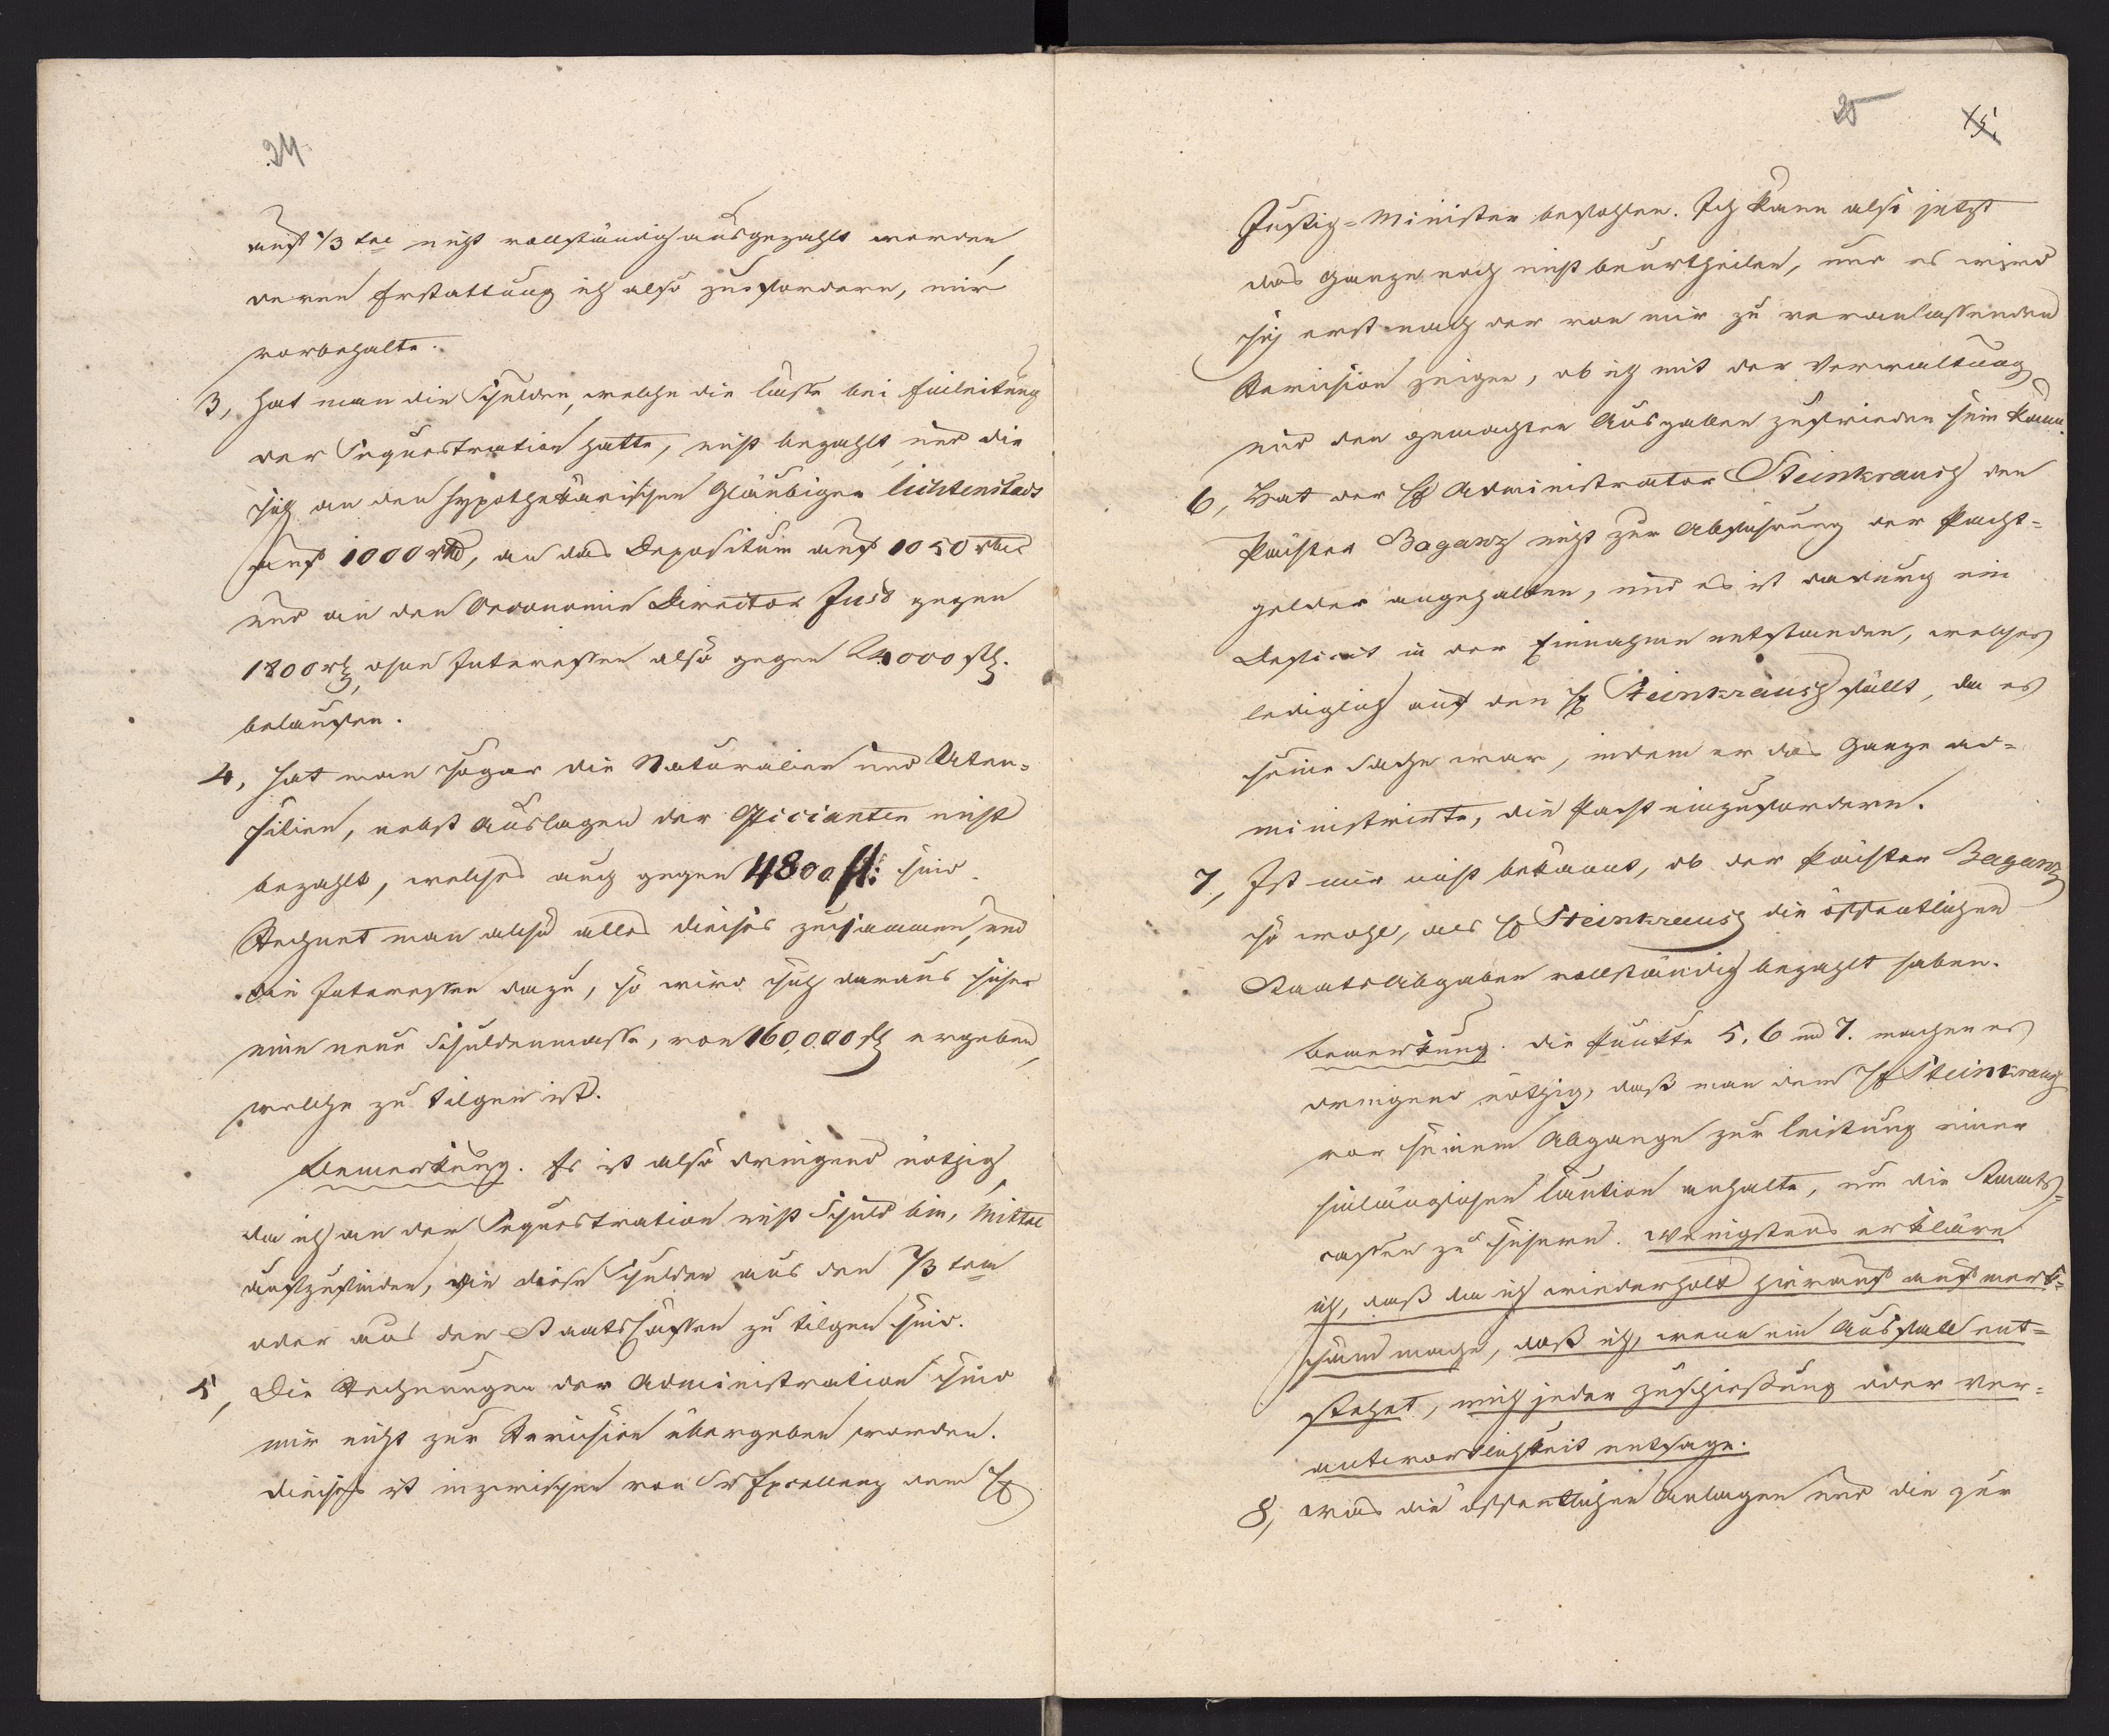 24
auf 1/3 tel nicht vollständig ausgezahlt worden,
deren Erstattung ich also zu fordern, mir
vorbehalte.
3, Hat man die Schulden, welche die Caße bei Einleitung
der Sequestration hatte, nicht bezahlt und die
sich an den hypothekarischen Gläubiger Lichtenstaedt
auf 1000 rthl, an das Depositum auf 1050 rthlr
und an den Oeconomie Director Just gegen
1800 rth, ohne Interessen also gegen 24000 fl.
belaufen.
4, Hat man sogar die Naturalien und Uten-
silien, nebst Auslagen der Officianten nicht
bezahlt, welches auch gegen 4800 fl: sind.
Rechnet man also alles dieses zusammen, und
die Interessen dazu, so wird sich daraus sicher
eine neue Schuldenmasse, von 160,000 fl ergeben,
welche zu tilgen ist.
Bemerkung. Es ist also dringend nöthig,
da ich an der Sequestration nicht Schuld bin, Mittel
aufzufinden, wie diese Schulden aus den 1/3 tem
oder aus den Staats Cassen zu tilgen sind.
5, Die Rechnungen der Administration sind
mir nicht zur Revision übergeben worden.
dieses ist inzwischen von Sr Excellenz dem H
25
15,
Justiz-Minister befohlen. Ich kann also jetzt
das Ganze noch nicht beurtheilen, und es wird
sich erst nach der von mir zu veranlassenden
Revision zeigen, ob ich mit der Verwaltung
und den gemachten Ausgaben zufrieden sein kann.
6, Hat der H Administrator Steinkrausch den
Pächter Baganz nicht zur Abführung der Pacht-
gelder angehalten, und es ist dadurch ein
Deficit in der Einnahme entstanden, welches
lediglich auf den H Steinkrausch fällt, da es
seine Sache war, indem er das Ganze ad-
ministrirte, die Pacht einzufordern.
7, Ist mir nicht bekannt, ob der Pächter Baganz
so wohl, als H Steinkrausch die öffentlichen
Staats Abgaben vollständig bezahlt haben.
Bemerkung. die Punkte 5, 6 und 7. machen es
dringend nöthig, daß man dem H Steinkrausch
vor seinem Abgange zur Leistung einer
hinlänglichen Caution anhalte, um die Staats-
cassen zu sichern. Wenigstens erkläre
ich, daß da ich wiederholt hierauf aufmerk-
sam mache, daß ich, wenn ein Ausfall ent-
stehet, mich jeder Zuschießung oder Ver-
antwortlichkeit entsage.
8, Was die öffentlichen Anlagen und die zur